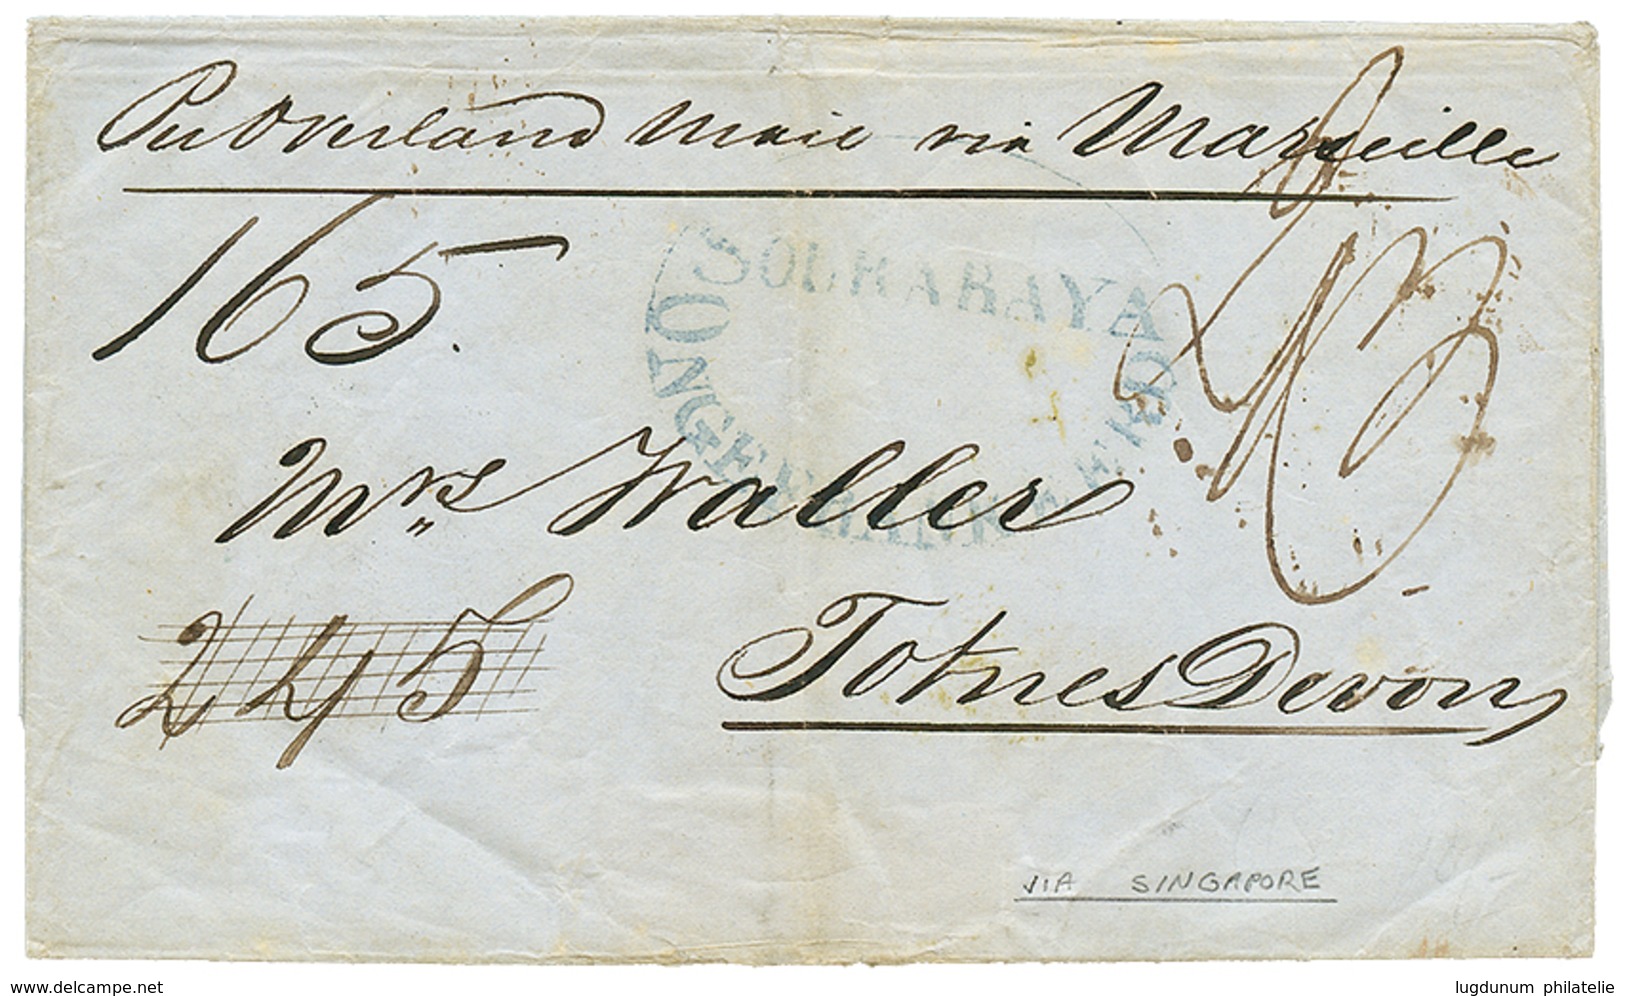 Per Overland Mail via Marseille
165.
SOURABAYA
ONGEFRANKEERD
Mrs Waller
245
Totnes Devon
VIA SINGAPORE
www.delcampe.net
lugdunum philatelie